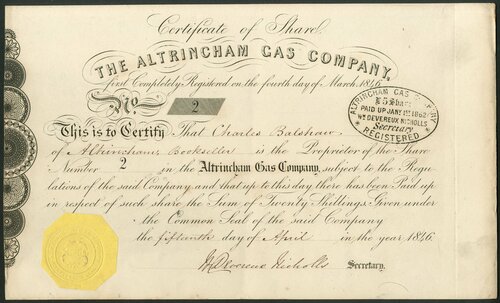 Certificate of Share
THE ALTRINCHAM GAS COMPANY,
first Completely Registered on the fourth day of March 1846
No 2
ALTRINCHAM GAS
£5 Share
PAID UP JANY 1st 1862
Wm DEVEREUX NICHOLLS
Secretary
REGISTERED
This is to Certify That Charles Balshaw
of Altrincham, Bookseller is the Proprietor of the Share
Number 2 in the Altrincham Gas Company, subject to the Regu-
lations of the said Company and that up to this day there has been Paid up
in respect of such share the Sum of Twenty Shillings Given under
the Common Seal of the said Company
the fifteenth day of April in the year 1846.
Nicholls Secretary.